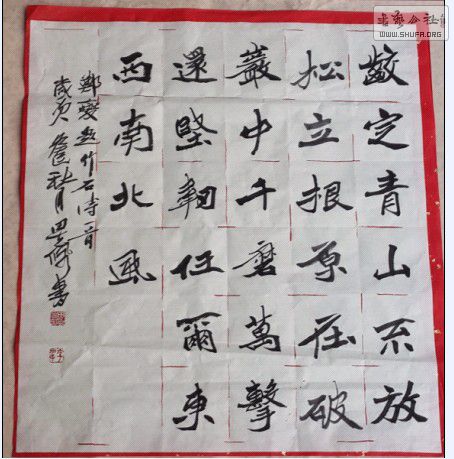 齩定青山不放
松立根原在破
巖中千磨萬擊
還堅韌任爾東
西南北風
鄭燮竹石詩一首
秋月書
書藝公社
WWW.SHUFA.ORG